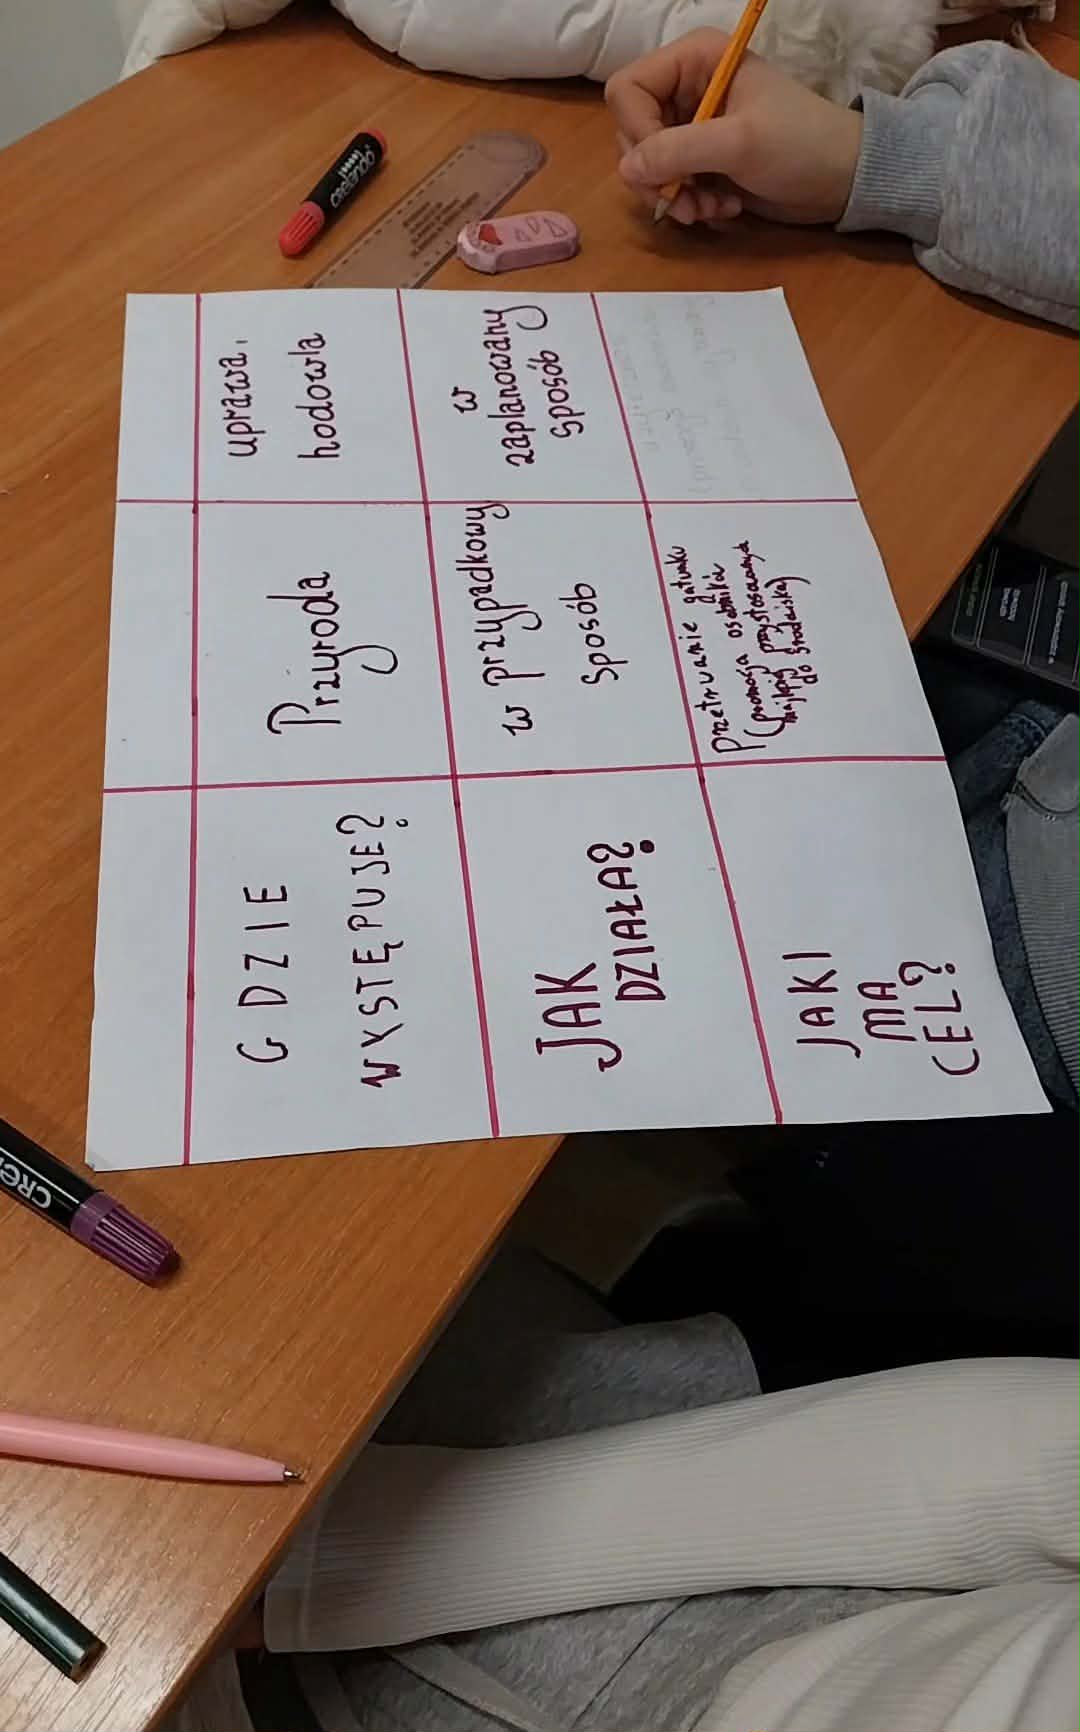 GDZIE
WYSTĘPUJE?
Przyroda
uprawa,
hodowla
JAK
DZIAŁA?
w przypadkowy
sposób
w
zaplanowany
sposób
JAKI
MA
CEL?
Przetrwanie gatunku
(promocja osobników
najlepiej przystosowanych
do środowiska)
crelando
CRE